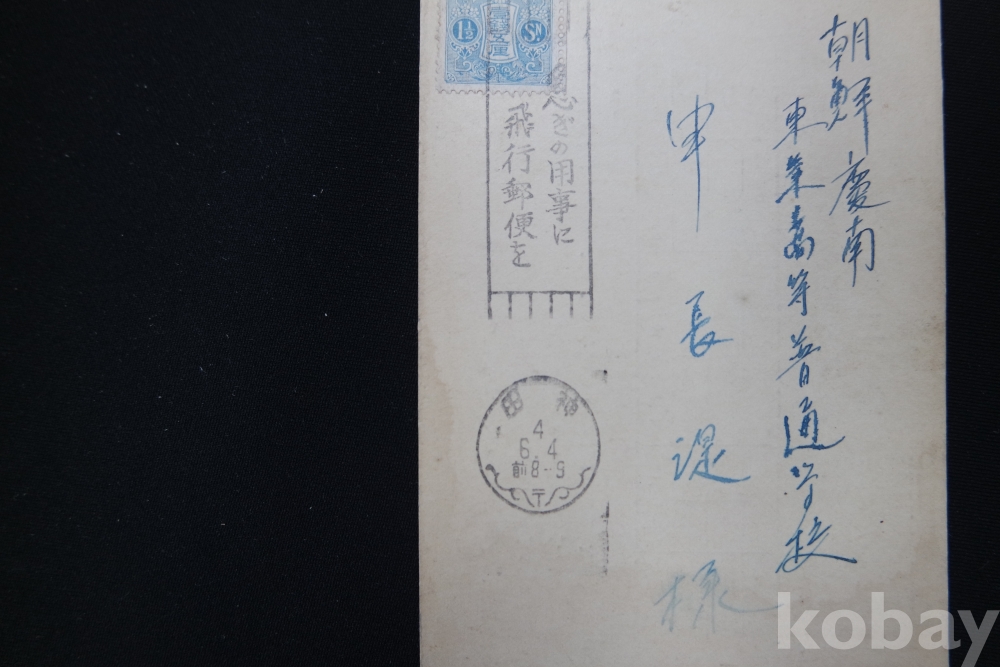 朝鮮慶南
東萊高等普通学校
申長湜
様
急ぎの用事に
飛行郵便を
1½ Sn
田
4
6.4
前8-9
〒
kobay